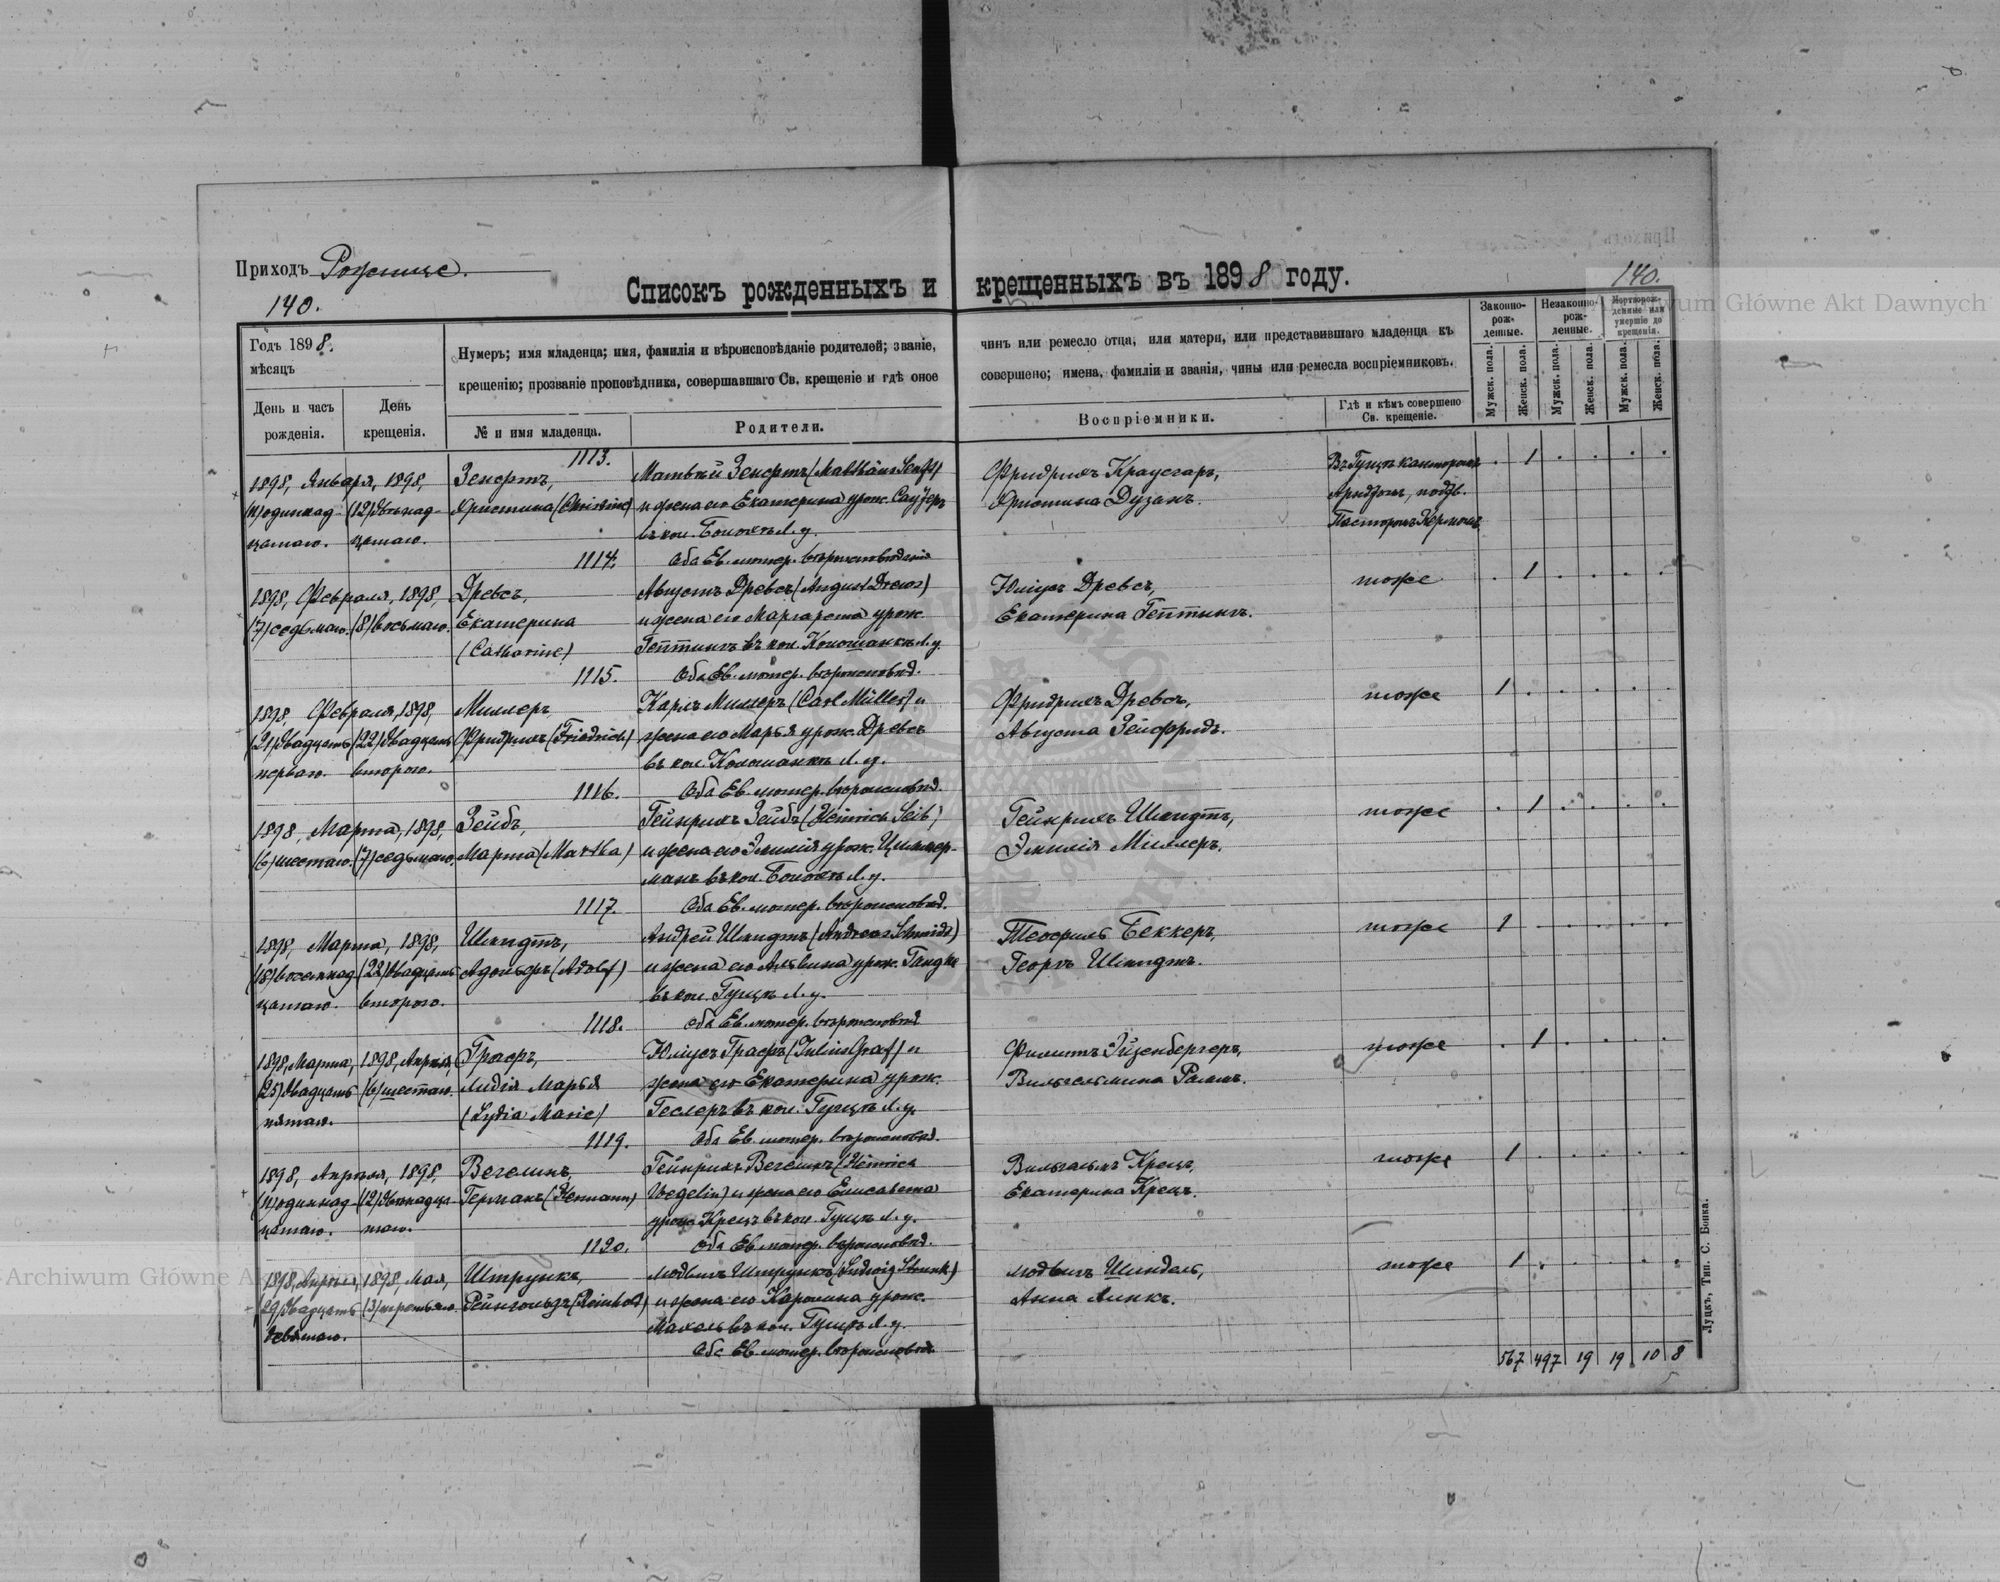 Приходъ Рожище.
140.
Списокъ рожденныхъ и крещенныхъ въ 1898 году.
140.
Archiwum Główne Akt Dawnych
Годъ 1898.
мѣсяцъ
Нумеръ; имя младенца; имя, фамилія и вѣроисповѣданіе родителей; званіе,
крещенію; прозваніе проповѣдника, совершавшаго Св. крещеніе и гдѣ оное
чинъ или ремесло отца, или матери, или представившаго младенца къ
совершено; имена, фамиліи и званія, чины или ремесла воспріемниковъ.
Законно-рож-денные.
Незаконно-рож-денные.
Мертворож-денные или умершіе до крещенія.
День и часъ рожденія.
День крещенія.
№ и имя младенца.
Родители.
Воспріемники.
Гдѣ и кѣмъ совершено Св. крещеніе.
Мужск. пола.
Женск. пола.
Мужск. пола.
Женск. пола.
Мужск. пола.
Женск. пола.
1113.
1898, Января, 1898, Зенфтъ, Матвѣй Зенфтъ (Matthäus Senft) Фридрихъ Краусгаръ, Въ Гущѣ канторомъ . 1 . . . .
(11) одиннад- (12) двѣнад- Христина (Christine) и жена его Екатерина урож. Христина Дузанъ.
цатаго. цатаго. въ кол. Л. у. Пасторомъ
1114. Оба Ев. лютер. вѣроисповѣданія
1898, Февраля, 1898, Древсъ, Августъ Древсъ (August Drews) Юліусъ Древсъ, тоже . 1 . . . .
(7) седьмаго. (8) восьмаго. Екатерина и жена его Маргарета урож. Екатерина Геттингъ.
(Catharine) Геттингъ въ кол. Л. у.
1115. Оба Ев. лютер. вѣроисповѣд.
1898, Февраля, 1898, Миллеръ Карлъ Миллеръ (Carl Müller) и Фридрихъ Древсъ, тоже 1 . . . . .
(21) двадцать (22) двадцать Фридрихъ (Friedrich) жена его Марья урож. Древсъ Августа Зейфридъ.
перваго. втораго. въ кол. Л. у.
1116. Оба Ев. лютер. вѣроисповѣд.
1898, Марта, 1898, Зейбъ, Гейнрихъ Зейбъ (Heinrich Seib) Гейнрихъ Шмидтъ, тоже . 1 . . . .
(6) шестаго. (7) седьмаго. Марта (Martha) и жена его Эмилія урож. Циммер- Эмилія Миллеръ.
манъ въ кол. Л. у.
1117. Оба Ев. лютер. вѣроисповѣд.
1898, Марта, 1898, Шмидтъ, Андрей Шмидтъ (Andreas Schmidt) Теофилъ Беккеръ, тоже 1 . . . . .
(18) восемнад (22) двадцать Адольфъ (Adolf) и жена его Альвина урож. Георгъ Шмидтъ.
цатаго. втораго. въ кол. Гущѣ Л. у.
1118. Оба Ев. лютер. вѣроисповѣд.
1898, Марта, 1898, Апрѣля, Графъ, Юліусъ Графъ (Julius Graf) и Филиппъ Эйзенбергеръ, тоже . 1 . . . .
(25) двадцать (6) шестаго. Лидія Марья жена его Екатерина урож. Вильгельмина
пятаго. (Lydia Marie) Геслеръ въ кол. Гущѣ Л. у.
1119. Оба Ев. лютер. вѣроисповѣд.
1898, Апрѣля, 1898, Вегелинъ, Гейнрихъ Вегелинъ (Heinrich Вильгельмъ Крецъ, тоже 1 . . . . .
(11) одиннад- (12) двѣнадца- Германъ (Hermann) Wegelin) и жена его Елисавета Екатерина Крецъ.
цатаго. таго. урож. Крецъ въ кол. Гущѣ Л. у.
1120. Оба Ев. лютер. вѣроисповѣд.
1898, Апрѣля, 1898, Мая, Штрункъ, Людвигъ Штрункъ (Ludwig Strunk) Людвигъ Шиндель, тоже 1 . . . . .
(29) двадцать (3) третьяго. Рейнгольдъ (Reinhold) и жена его Каролина урож. Анна Линкъ.
девятаго. въ кол. Гущѣ Л. у.
Оба Ев. лютер. вѣроисповѣд.
567 497 19 19 10 8
Луцкъ, Тип. С. Бонка.
Archiwum Główne